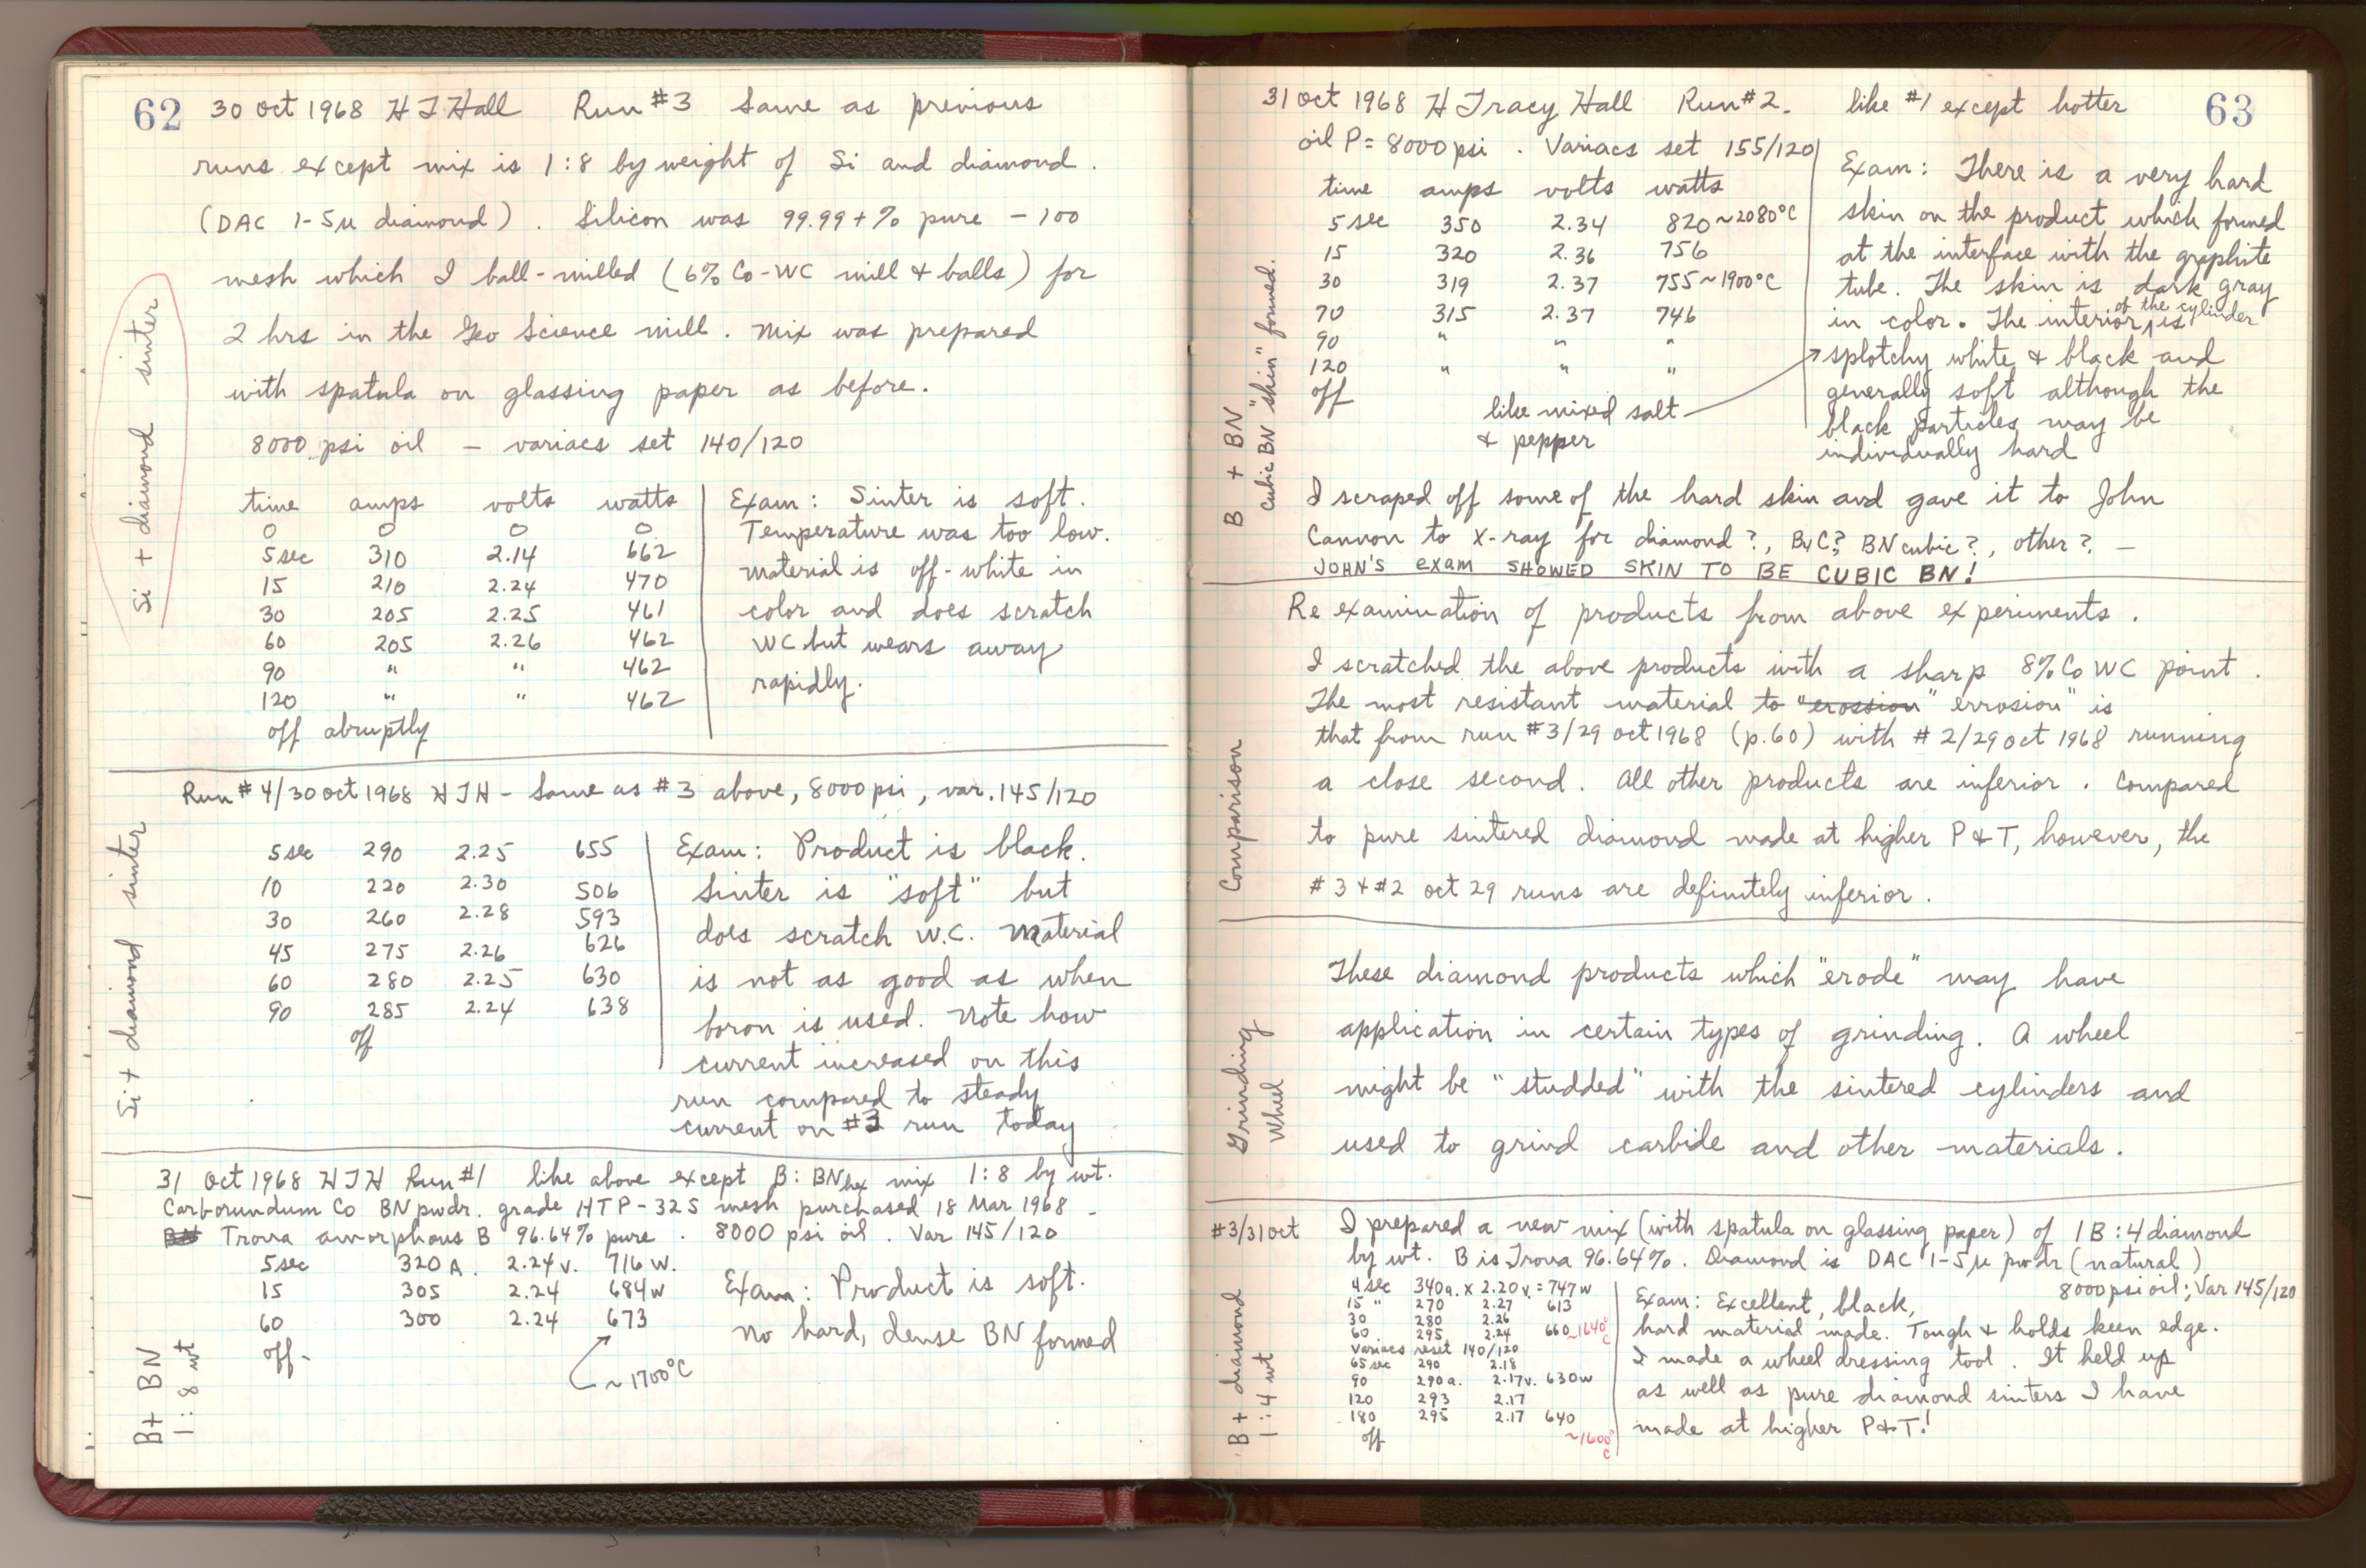 62 30 Oct 1968 H T Hall Run #3 Same as previous
runs except mix is 1:8 by weight of Si and diamond.
(DAC 1-5µ diamond). Silicon was 99.99+% pure -100
mesh which I ball-milled (6% Co-WC mill & balls) for
2 hrs in the Geo Science mill. Mix was prepared
with spatula on glassing paper as before.
8000 psi oil - variacs set 140/120
Si + diamond sinter
time amps volts watts
0 0 0 0
5 sec 310 2.14 662
15 210 2.24 470
30 205 2.25 461
60 205 2.26 462
90 " " 462
120 " " 462
off abruptly
Exam: Sinter is soft.
Temperature was too low.
Material is off-white in
color and does scratch
WC but wears away
rapidly.
Run #4/30 Oct 1968 HTH - Same as #3 above, 8000 psi, var. 145/120
Si + diamond sinter
5 sec 290 2.25 655
10 220 2.30 506
30 260 2.28 593
45 275 2.26 626
60 280 2.25 630
90 285 2.24 638
off
Exam: Product is black.
Sinter is "soft" but
does scratch W.C. Material
is not as good as when
boron is used. Note how
current increased on this
run compared to steady
current on #3 run today
31 Oct 1968 HTH Run #1 like above except B: BNhex mix 1:8 by wt.
Carborundum Co BN pwdr. grade HTP-325 mesh purchased 18 Mar 1968 -
Trona amorphous B 96.64% pure. 8000 psi oil. Var 145/120
B + BN
1:8 wt
5 sec 320 A. 2.24 v. 716 W.
15 305 2.24 684 w
60 300 2.24 673
off-
~1700°C
Exam: Product is soft.
No hard, dense BN formed
31 Oct 1968 H Tracy Hall Run #2. like #1 except hotter 63
oil P = 8000 psi. Variacs set 155/120
B + BN
cubic BN "skin" formed.
time amps volts watts
5 sec 350 2.34 820 ~2080°C
15 320 2.36 756
30 319 2.37 755 ~1900°C
70 315 2.37 746
90 " " "
120 " " "
off
like mixed salt
& pepper
Exam: There is a very hard
skin on the product which formed
at the interface with the graphite
tube. The skin is dark gray
in color. The interior of the cylinder is
splotchy white & black and
generally soft although the
black particles may be
individually hard
I scraped off some of the hard skin and gave it to John
Cannon to X-ray for diamond?, B4C? BN cubic?, other? -
JOHN'S exam SHOWED SKIN TO BE CUBIC BN!
Comparison
Re examination of products from above experiments.
I scratched the above products with a sharp 8% Co WC point.
The most resistant material to "erossion" errosion" is
that from run #3/29 Oct 1968 (p. 60) with #2/29 Oct 1968 running
a close second. All other products are inferior. Compared
to pure sintered diamond made at higher P & T, however, the
#3 & #2 Oct 29 runs are definitely inferior.
Grinding
Wheel
These diamond products which "erode" may have
application in certain types of grinding. A wheel
might be "studded" with the sintered cylinders and
used to grind carbide and other materials.
#3/31 Oct I prepared a new mix (with spatula on glassing paper) of 1B:4 diamond
by wt. B is Trona 96.64%. Diamond is DAC 1-5µ pwdr (natural)
8000 psi oil; Var 145/120
B + diamond
1:4 wt
4 sec 340 a. x 2.20 v. = 747 w
15 " 270 2.27 613
30 280 2.26
60. 295 2.24 660 ~1640°C
Variacs reset 140/120
65 sec 290 2.18
90 290 a. 2.17 v. 630 w
120 293 2.17
180 295 2.17 640
off ~1600°C
Exam: Excellent, black,
hard material made. Tough & holds keen edge.
I made a wheel dressing tool. It held up
as well as pure diamond sinters I have
made at higher P & T!